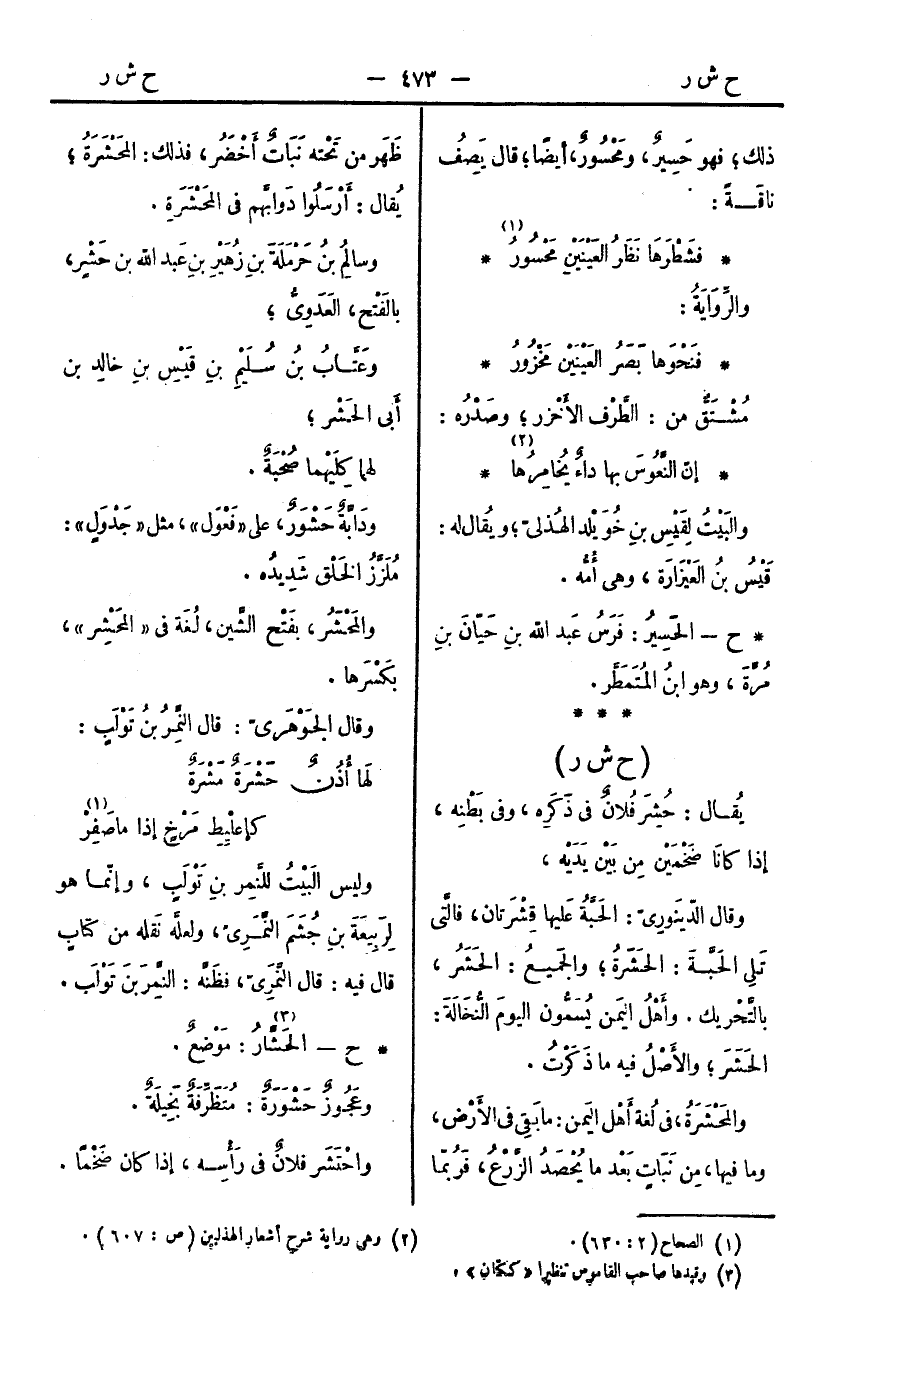 ح ش ر — ٤٧٣ — ح ش ر
ذلك؛ فهو حَسِيرٌ، ومَحْسُورٌ، أيضًا؛ قال يَصِف
ناقَــةً :
* فشَطْرَها نَظَرُ العَيْنَيْنِ مَحْسُورُ (١) *
والرِّوَايَةُ :
* فَنَحْوَها بَصَرُ العَيْنَيْنِ مَخْزُورُ *
مُشْــتَقٌّ من : الطَّرْف الأَخْزر؛ وصَدْرُه :
* إنّ النَّعُوسَ بها داءٌ يُخامِرُها (٢) *
والبَيْتُ لِقَيْس بنِ خُوَيْلد الهُذلىّ؛ ويُقال له :
قَيْسُ بنُ العَيْزَارَة ، وهى أُمُّه .
* ح – الحَسِيرُ : فَرَسُ عَبد الله بنِ حَيّانَ بنِ
مُرَّةَ ، وهو ابنُ المُتَمَطَّر .
* * *
(ح ش ر)
يُقــال : حُشِرَ فُلانٌ فى ذَكَرِه ، وفى بَطْنِه ،
إذا كانَا ضَخْمَيْنِ مِن بَيْن يَدَيْه ،
وقال الدِّينَورىّ : الحَبَّةُ عَليها قِشْرَتان ، فالَّتى
تَلِى الحَبَّــةَ : الحَشَرَةُ ؛ والجَمِيــعُ : الحَشَرُ ،
بالتَّحْريك . وأَهْلُ اليَمن يُسَمُّون اليومَ النُّخَالَةَ :
الحَشَرَ ؛ والأَصْلُ فيه ما ذَكَرْتُ .
والمَحْشَرَةُ، فى لُغة أَهْل اليَمن : ما بَقِى فى الأَرْض،
وما فيها، مِن نَبَاتٍ بَعْد ما يُحْصَدُ الزَّرْعُ، فَرُبّما
ظَهَر من تَحْته نَبَاتٌ أَخْضَرُ، فذلك : المَحْشَرَةُ ؛
يُقال : أَرْسَلُوا دَوابَّهم فى المَحْشَرَةِ .
وسالِمُ بنُ حَرْمَلَةَ بنِ زُهَيْرِ بنِ عَبد الله بن حَشْرٍ،
بالفَتْح، العَدَوِىُّ ؛
وعَتَّــابُ بنُ سُــلَيْمِ بنِ قَيْسِ بنِ خالِد بن
أَبى الحَشْر ؛
لهما كِلَيْهما صُحْبَةٌ .
ودَابَّةٌ حَشْوَرٌ، على «فَعْوَل»، مثل «جَدْوَلٍ» :
مُلَزَّزُ الخَلْق شَدِيدُه .
والمَحْشَر ، بفَتْح الشِّين، لُغة فى «المَحْشِر» ،
بكَسْرها .
وقال الجَوْهَرىّ : قال النَّمِرُ بنُ تَوْلَبٍ :
لَها أُذُنٌ حَشْرَةٌ مَشْرَةٌ
كإعلِيطِ مَرْخٍ إذا ما صَفِرْ (١)
وليس البَيْتُ للنَّمِر بنِ تَوْلَبٍ ، وإنّمــا هو
لِرَبِيعَة بنِ جُشَمَ النَّمَــرِىّ، ولعلَّه نَقله من كتابٍ
قال فيه : قال النَّمَرِىّ، فظَنَّه : النَّمِرَ بنَ تَوْلَب .
* ح – الحَشَّارُ (٣) : مَوْضعٌ .
وعَجُوزٌ حَشْوَرَةٌ : مُتَظَرِّفَةٌ بَخِيلَةٌ .
واحْتَشَر فلانٌ فى رَأْسِــه ، إذا كان ضَخْمًا .
(١) الصحاح (٢ : ٦٣٠) . (٢) وهى رواية شرح أشعار الهذليين (ص : ٦٠٧) .
(٣) وقيدها صاحب القاموس تنظيرا «ككتان» .